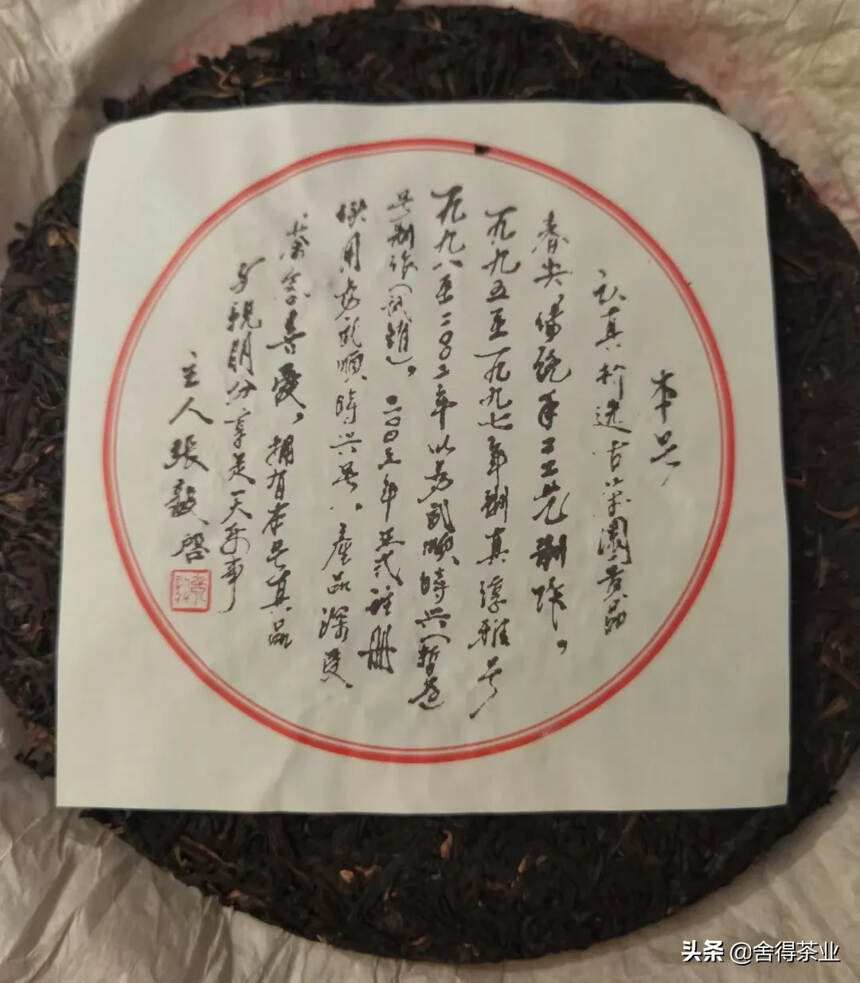 本号,
认真拎选古茶園贡品
春尖傳统手工艺制作。
一九九五至一九九七年制真淳雅号
一九九八至二00二年以易武順時兴(暂定
号制作(試销)。二00三年正式註册
使用易武順時兴号,產品深受
茶客喜爱,拥有本号真品
与親朋分享是天乐事
主人張毅啓
头条 @舍得茶业